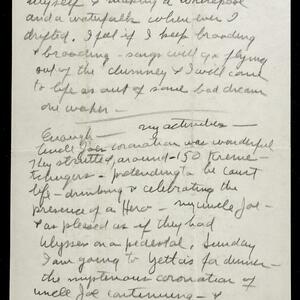 myself & making a whirlpool
and a waterfall wherever I
drifted. I feel if I keep brooding
& brooding - songs will go flying
out of the chimney & I will come
to life as out of some bad dream
one wakes -
Enough - my activities -
Uncle Joe's coronation was wonderful
They strutted around - 150
- pretending to be court
life - drinking & celebrating the
presence of a Hero - my uncle Joe -
& as pleased as if they had
Ulysses on a pedestal. Sunday
I am going to for dinner -
the mysterious coronation of
uncle Joe continuing - &